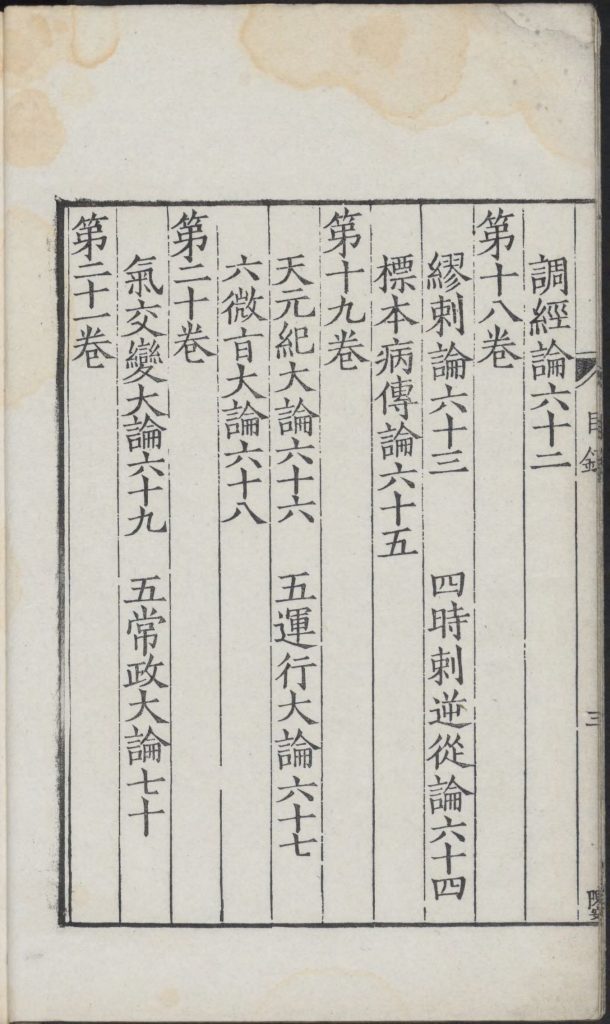 調經論六十二
第十八卷
繆刺論六十三 四時刺逆從論六十四
標本病傳論六十五
第十九卷
天元紀大論六十六 五運行大論六十七
六微旨大論六十八
第二十卷
氣交變大論六十九 五常政大論七十
第二十一卷
目錄
三